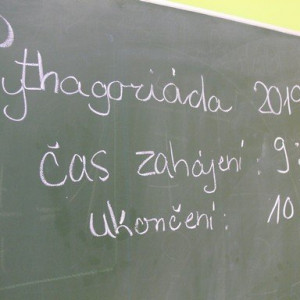 Pythagoriáda 2019
čas zahájení: 9:
ukončení: 10